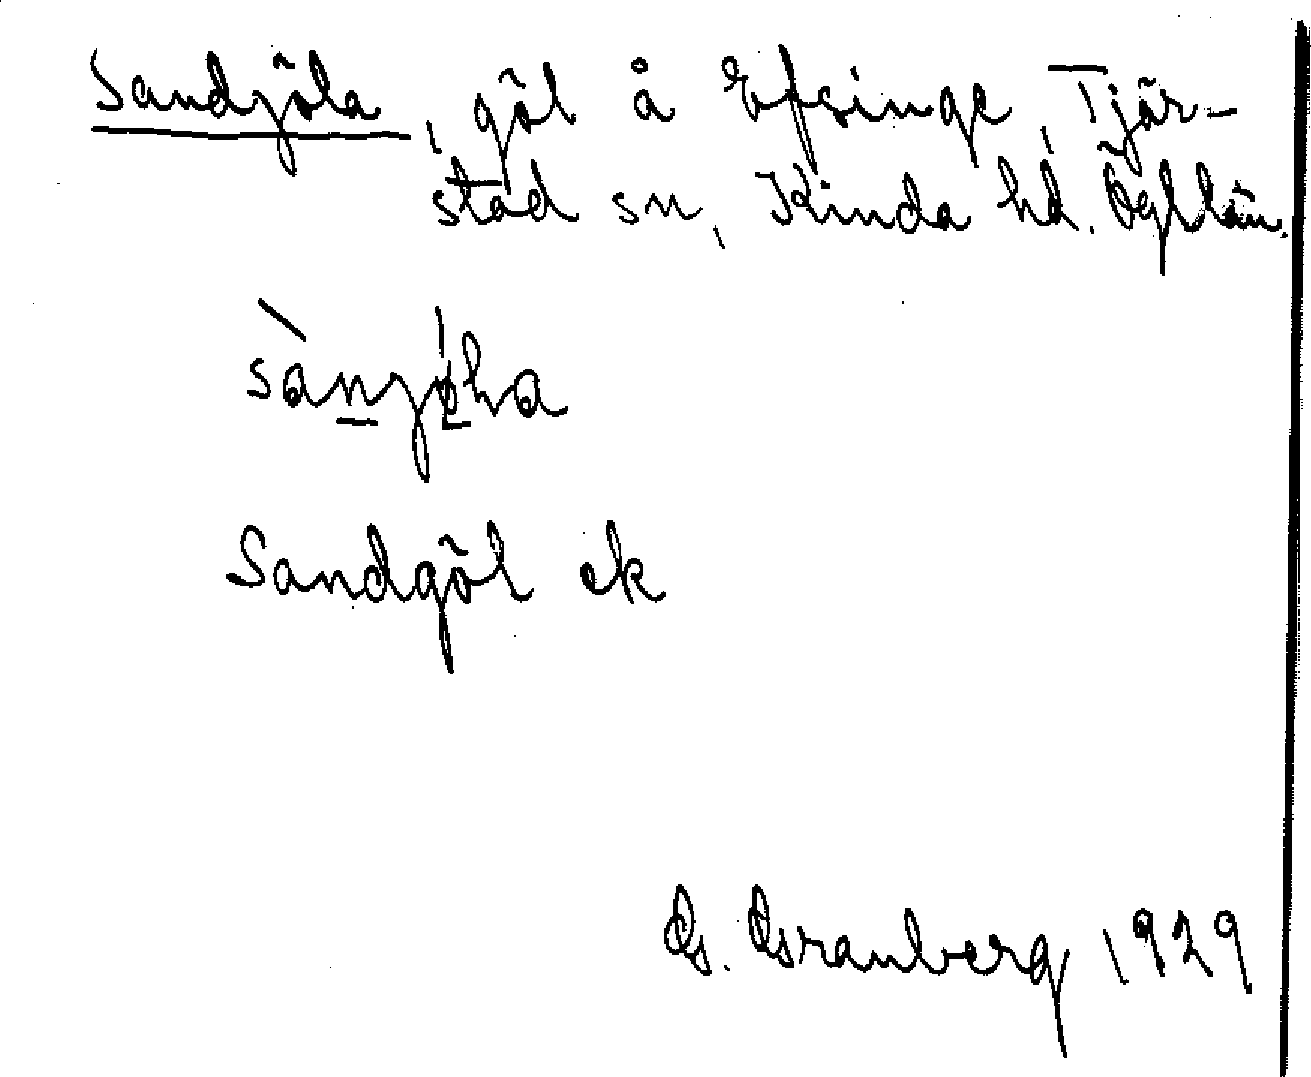 Sandjöla, göl å Efsinge Tjär-
stad sn, Kinda hd. Ögl län.
Sandgöl ek
G. Granberg 1929